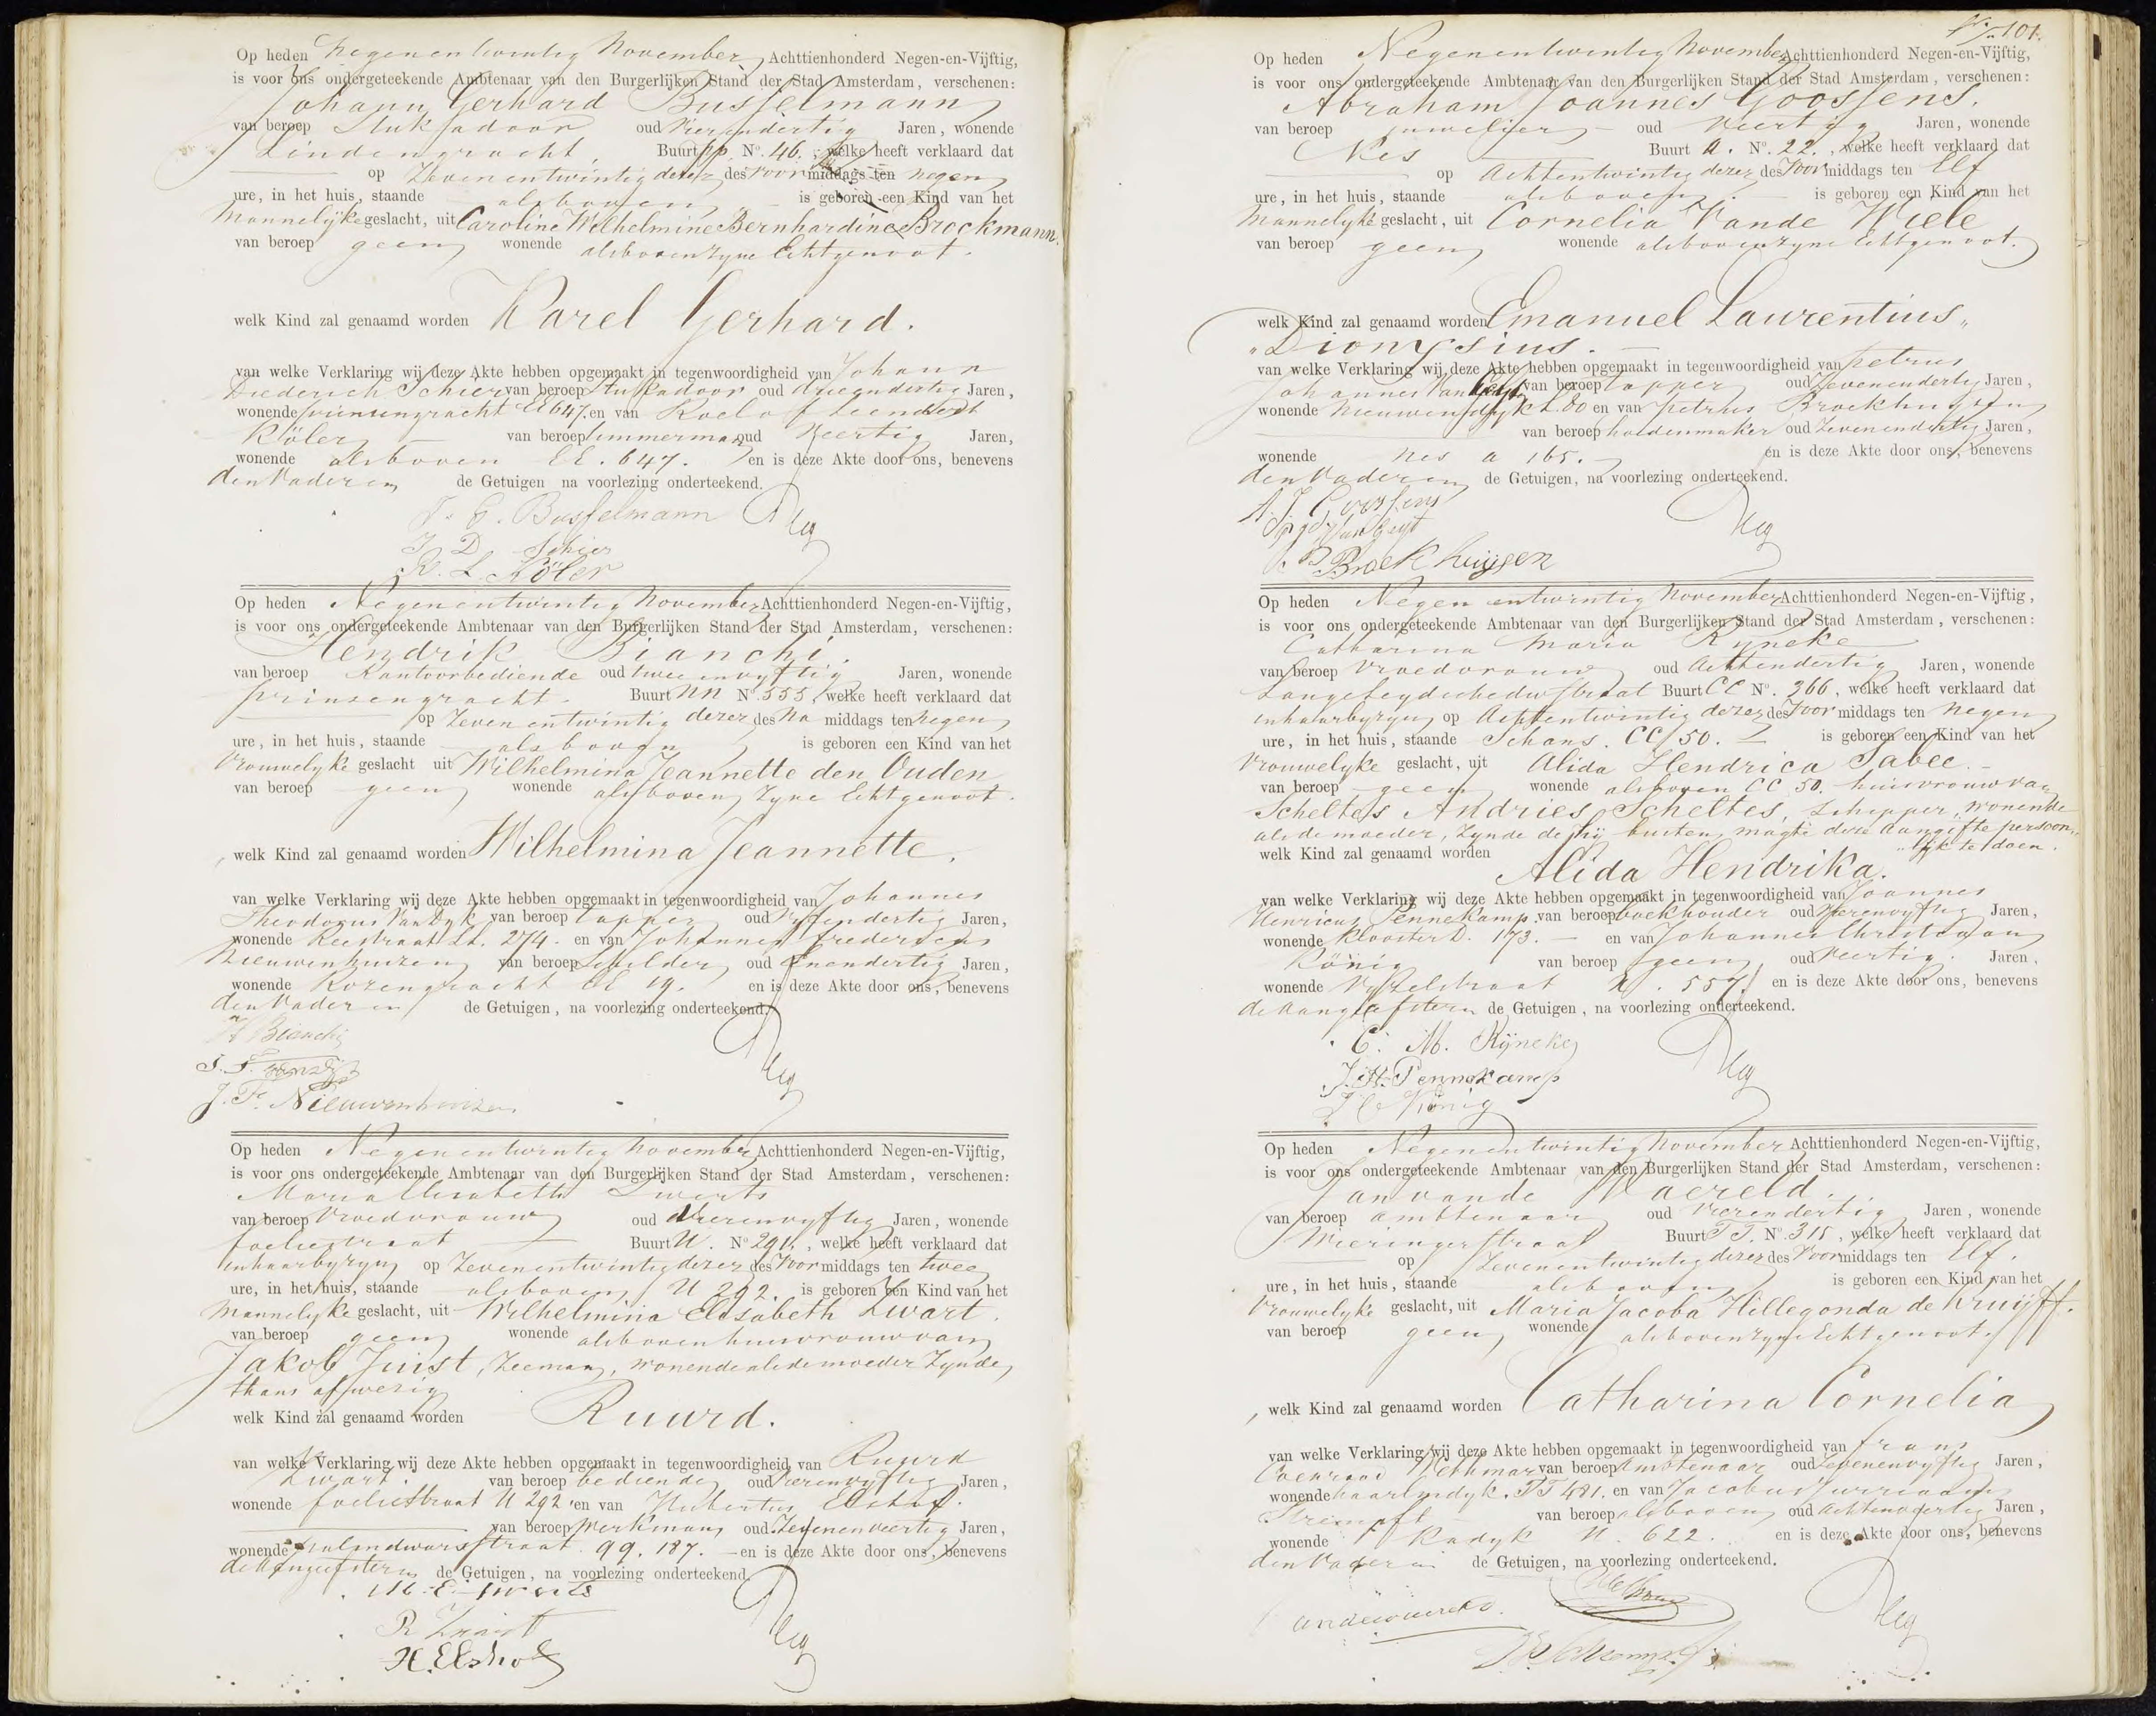 Op heden Negenentwintig November Achttienhonderd Negen-en-Vijftig,
is voor ons ondergeteekende Ambtenaar van den Burgerlijken Stand der Stad Amsterdam, verschenen:
Johann Gerhard Busselmann
van beroep Stukadoor oud Vierendertig Jaren, wonende
Lindengracht Buurt pp No. 46, welke heeft verklaard dat
op Zevenentwintig dezer des Voormiddags ten negen
ure, in het huis, staande alsboven is geboren een Kind van het
Mannelijke geslacht, uit Caroline Wilhelmine Bernhardine Brockmann.
van beroep geen wonende alsboven zyne Echtgenoot.
welk Kind zal genaamd worden Karel Gerhard.
van welke Verklaring wij deze Akte hebben opgemaakt in tegenwoordigheid van Johann
Diederich Schier van beroep Stukadoor oud drieendertig Jaren,
wonende prinsengracht EE 647. en van Roelof Leendert
Köler van beroep timmerman oud Veertig Jaren,
wonende alsboven EE. 647. en is deze Akte door ons, benevens
den Vader en de Getuigen na voorlezing onderteekend.
J. G. Busselmann
J D Schier
R. L. Köler
Op heden Negenentwintig November Achttienhonderd Negen-en-Vijftig,
is voor ons ondergeteekende Ambtenaar van den Burgerlijken Stand der Stad Amsterdam, verschenen:
Hendrik Bianchi.
van beroep Kantoorbediende oud twee envyftig Jaren, wonende
prinsengracht. Buurt NN No. 555, welke heeft verklaard dat
op Zevenentwintig dezer des Na middags ten negen
ure, in het huis, staande alsboven is geboren een Kind van het
Vrouwelyke geslacht uit Wilhelmina Jeannette den Ouden
van beroep geen wonende alsboven, Zyne Echtgenoot.
welk Kind zal genaamd worden Wilhelmina Jeannette.
van welke Verklaring wij deze Akte hebben opgemaakt in tegenwoordigheid van Johannes
Theodorus van Dyk van beroep tapper oud Vyfendertig Jaren,
wonende Reestraat 274. en van Johannes fredericus
Nieuwenhuizen van beroep Schilder oud Eenendertig Jaren,
wonende Rozengracht 19. en is deze Akte door ons, benevens
den Vader en de Getuigen, na voorlezing onderteekend.
H Bianchi
J. F. Nieuwenhuizen
Op heden Negenentwintig November Achttienhonderd Negen-en-Vijftig,
is voor ons ondergeteekende Ambtenaar van den Burgerlijken Stand der Stad Amsterdam, verschenen:
Maria Elisabeth Swerts
van beroep Vroedvrouw oud Vierenvyftig Jaren, wonende
foeliestraat Buurt U. No 291, welke heeft verklaard dat
tenhaarbyzyn op Zevenentwintig dezer des Voormiddags ten twee
ure, in het huis, staande alsboven U 292. is geboren een Kind van het
Mannelyke geslacht, uit Wilhelmina Elisabeth Zwart.
van beroep geen wonende alsboven huisvrouw van
Jakob Juist, Zeeman, wonende als de moeder Zynde
thans afwezig
welk Kind zal genaamd worden Ruurd.
van welke Verklaring wij deze Akte hebben opgemaakt in tegenwoordigheid van Ruurd
Zwart. van beroep bediende oud Vierenvyftig Jaren,
wonende foeliestraat U 292 en van Hubertus Elshof.
van beroep Werkman oud Zevenenveertig Jaren,
wonende palmdwarsstraat. 99. 187. en is deze Akte door ons, benevens
de Aangeefster en de Getuigen, na voorlezing onderteekend.
M. E. Swerts
R Zwart
H. Elshof
101.
Op heden Negenentwintig November Achttienhonderd Negen-en-Vijftig,
is voor ons ondergeteekende Ambtenaar van den Burgerlijken Stand der Stad Amsterdam, verschenen:
Abraham Joannes Goossens.
van beroep juwelier oud Veertig Jaren, wonende
Nes Buurt A. No. 22., welke heeft verklaard dat
op Achtentwintig dezer des Voormiddags ten Elf
ure, in het huis, staande alsboven is geboren een Kind van het
Mannelyke geslacht, uit Cornelia Vande Wiele
van beroep geen wonende alsboven zyne Echtgenoot.
welk Kind zal genaamd worden Emanuel Laurentius "
" Dionysius.
van welke Verklaring wij deze Akte hebben opgemaakt in tegenwoordigheid van petrus
Johannes van van beroep tapper oud Zevenendertig Jaren,
wonende Nieuwendyk L. 80 en van petrus Broekhuyzen
van beroep hoedenmaker oud Zevenendertig Jaren,
wonende Nes A 165. en is deze Akte door ons, benevens
den Vader en de Getuigen, na voorlezing onderteekend.
A. J. Goossens
P Broekhuijsen
Op heden Negen entwintig November Achttienhonderd Negen-en-Vijftig,
is voor ons ondergeteekende Ambtenaar van den Burgerlijken Stand der Stad Amsterdam, verschenen:
Catharina Maria Ryneke
van beroep Vroedvrouw oud Achtendertig Jaren, wonende
Langeleydschedwstraat Buurt CC No. 366, welke heeft verklaard dat
tenhaarbyzyn op Achtentwintig dezer des Voormiddags ten negen
ure, in het huis, staande Schans. CC 50. is geboren een Kind van het
Vrouwelyke geslacht, uit Alida Hendrica Sabee.
van beroep geen wonende alsboven CC 50. huisvrouw van
Scheltes Andries Scheltes, Schipper, wonende
als de moeder, Zynde de hy buiten magte deze aangifte persoon"
"lyk te doen.
welk Kind zal genaamd worden
Alida Hendrika.
van welke Verklaring wij deze Akte hebben opgemaakt in tegenwoordigheid van Joannes
Henricus Pennekamp van beroep boekhouder oud Vierenvyftig Jaren,
wonende Klooster D. 173. en van Johannes Christiaan
König van beroep geen oud Veertig. Jaren,
wonende Vyzelstraat X. 557. en is deze Akte door ons, benevens
de Aangeefster en de Getuigen, na voorlezing onderteekend.
C. M. Rijneke
J. H. Pennekamp
J C König
Op heden Negenentwintig November Achttienhonderd Negen-en-Vijftig,
is voor ons ondergeteekende Ambtenaar van den Burgerlijken Stand der Stad Amsterdam, verschenen:
Jan vande Waereld.
van beroep ambtenaar oud Vierendertig Jaren, wonende
Wieringerstraat Buurt TT. No. 315, welke heeft verklaard dat
op Zevenentwintig dezer des Voormiddags ten Elf.
ure, in het huis, staande alsboven is geboren een Kind van het
Vrouwelyke geslacht, uit Maria Jacoba Hillegonda de Kruyff.
van beroep geen wonende alsboven zyne Echtgenoot.
welk Kind zal genaamd worden Catharina Cornelia
van welke Verklaring wij deze Akte hebben opgemaakt in tegenwoordigheid van frans
Coenraad van beroep Ambtenaar oud Zevenenvyftig Jaren,
wonende haarlmdyk. TT 481. en van Jacobus Jurriaan
van beroep alsboven oud Achtenveertig Jaren,
wonende Kadyk 622. en is deze Akte door ons, benevens
den Vader en de Getuigen, na voorlezing onderteekend.